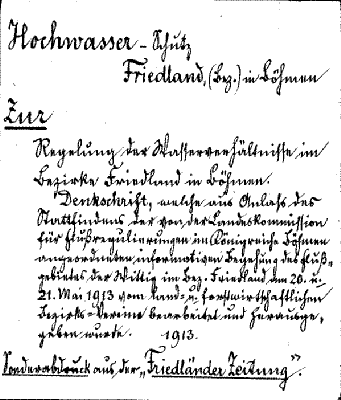 Hochwasser-Schutz
Friedland, (Bez.) in Böhmen
Zur
Regelung der Wasserverhältnisse im
Bezirke Friedland in Böhmen.
Denkschrift, welche aus Anlaß des
Stattfindens der von der Landeskommission
für Flußregulierungen im Königreiche Böhmen
angeordneten informativen Begehung des Fluß-
gebietes der Wittig im Bez. Friedland am 20. u.
21. Mai 1913 vom land- u. forstwirtschaftlichen
Bezirks-Vereine bearbeitet und herausge-
geben wurde. 1913.
Sonderabdruck aus der „Friedländer Zeitung".